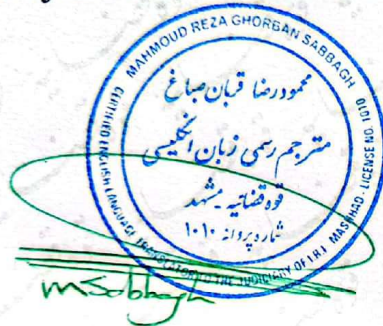 MAHMOUD REZA GHORBAN SABBAGH
CERTIFIED ENGLISH LANGUAGE TRANSLATOR TO THE JUDICIARY OF I.R.I. MASHHAD - LICENSE NO. 1010
محمودرضا قربان صباغ
مترجم رسمی زبان انگلیسی
قوه قضائیه - مشهد
شماره پروانه ۱۰۱۰
MSabbagh